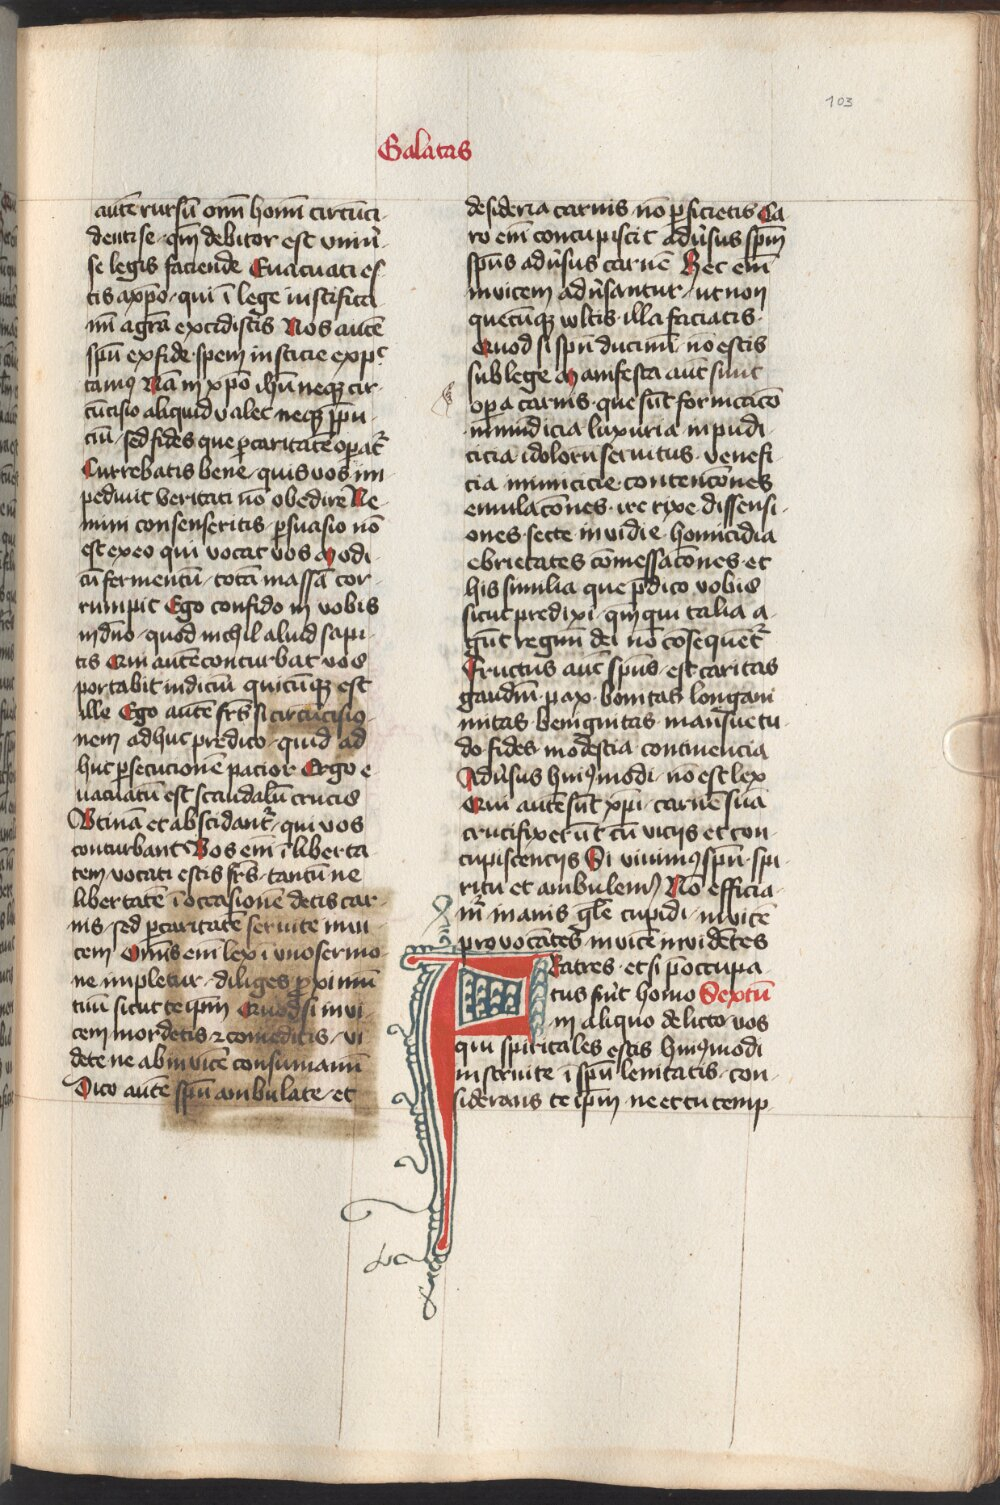 103
Galatas
autē rursū om̄i homī circūci
denti se · qm̄ debitor est vniu̇
se legis faciende Euacuati es
tis a xp̄o · qui ī lege iustifica
mī a grā excidistis Nos autē
spū ex fide · spem iusticie expc
tamꝰ Nā in xp̄o ihū neqꝫ cir
cūcisio aliquid valet neqꝫ p̄pu
ciū · sed fides que p caritatē opat᷑
Currebatis bene · quis vos im
pediuit veritati nō obedire Ne
mini consenseritis psuasio nō
est ex eo qui vocat vos Modi
cū fermentū · totā massā cor
rumpit Ego confido in vobis
in dn̄o · quod nichil aliud sapi
tis Qui autē conturbat vos
portabit iudiciū quicūqꝫ est
ille Ego autē frs̄ si circūcisio
nem adhuc predico · quid ad
huc psecucionē pacior Ergo e
uacuatū est scandalū crucis
Vtinā et abscidant᷑ · qui vos
conturbant Vos em̄ ī liberta
tem vocati estis frs̄ · tantū ne
libertatē ī occasionē detis car
nis · sed p caritatē seruite inui
cem Om̄is em̄ lex ī vno sermo
ne impletur · diliges pximū
tuū sicut te ip̄m Quod si inui
cem mordetis ⁊ comeditis · vi
dete ne ab inuicē consumamī
Dico autē spū ambulate · et
desideria carnis · nō pficietis Ca
ro em̄ concupiscit adu̇sus sp̄m
sp̄us adu̇sus carnē Hec em̄
inuicem adu̇santur · ut non
quecūqꝫ vltis · illa faciatis ·
Quod si spū ducimī · nō estis
sub lege Manifesta aut̄ sunt
opa carnis · que sūt fornicacō
inmūdicia luxuria inpudi
cicia idolorū seruitus · venefi
cia inimicicie · contencōnes
emulacōnes · ire rixe dissensi
ones · secte inuidie · homicidia
ebrietates cōmessacōnes · et
his similia que p̄dico vobis
sicut predixi · qm̄ qui talia a
gūt regnū dei nō cōsequent᷑
Fructus aut̄ sp̄us · est caritas
gaudiū · pax · bonitas longani
mitas benignitas mansuetu
do fides modestia continencia
Adu̇sus huiꝰmodi · nō est lex
Qui autē sūt xp̄i · carnē suā
crucifixerūt cū vicijs et con
cupiscencijs Si viuimꝰ spū · spi
ritu et ambulemꝰ Nō efficia
m᷑ inanis gl̄e cupidi · inuicē
prouocātes · inuicē inuidētes
Fratres · et si p̄occupa
tus fūit homo Sextū
in aliquo delicto · vos
qui spiritales estis huiꝰmodi
instruite ī spū lenitatis · con
siderans te ip̄m ne et tu temp